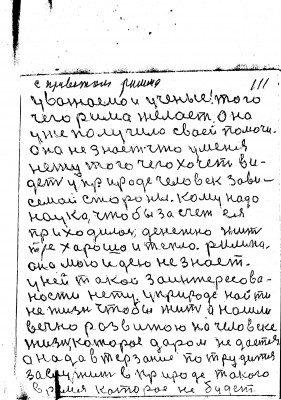 с приветом римма
111
уважаемои ученые! того
чего рима желает. она
уже получило своеи помочи.
она не знает что у меня
нету того чего хочет ви-
дет у природе человек зави-
семой стороны. кому надо
наука, чтобы за счет ея
приходилос, денежно жит
хорошо и тепло. римма.
она мою идею не знает.
у ней такой заинтересова-
ности нету. у природе найти
не жизн чтобы жит а нашли
вечно розвитою на человеке
жизн, которое даром не дается
она давтерзание потрудится
заслужит в природе такого
время которое не будет